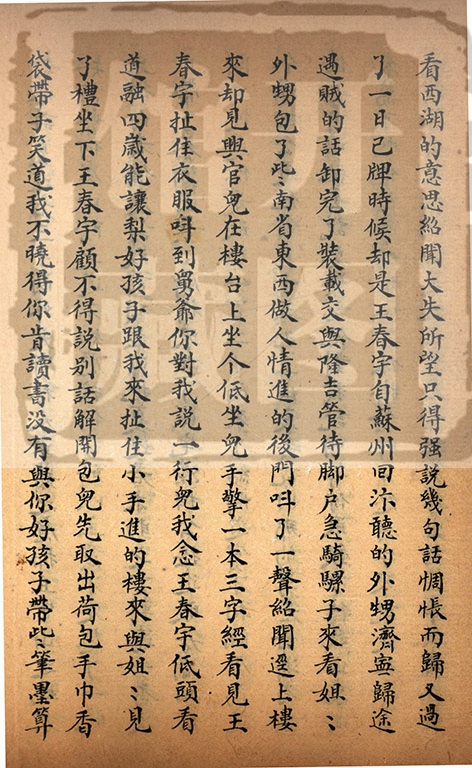 看西湖的意思紹聞大失所望只得强説幾句話惆悵而歸又過
了一日已牌時候却是王春宇自蘇州回汴聽的外甥濟寧歸途
遇賊的話卸完了裝載交與隆吉管待脚户急騎騾子來看姐〻
外甥包了些〻南省東西做人情進的後門呌了一聲紹聞逕上樓
來却見興官兒在樓台上坐个低坐兒手擎一本三字經看見王
春宇扯住衣服呌到舅爺你對我説一行兒我念王春宇低頭看
道融四歲能讓梨好孩子跟我來扯住小手進的樓來與姐〻見
了禮坐下王春宇顧不得説别話解開包兒先取出荷包手巾香
袋帶子笑道我不曉得你肯讀書没有與你好孩子帶些〻筆墨算